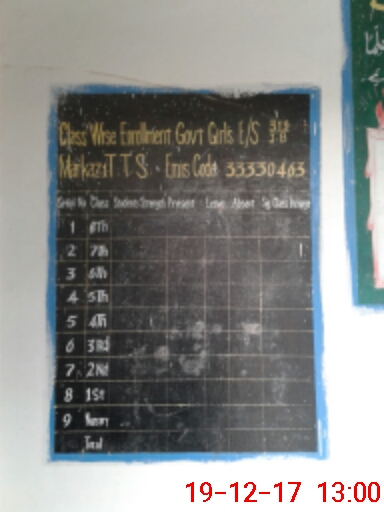 Class Wise Enrollment Govt Girls E/S
Markazi T T S. Emis Code 33330463
Serial No Class Students Strength Present Leave Absent Sig Class Incharge
1 8Th
2 7Th
3 6Th
4 5Th
5 4Th
6 3Rd
7 2Nd
8 1St
9 Nursery
Total
19-12-17 13:00